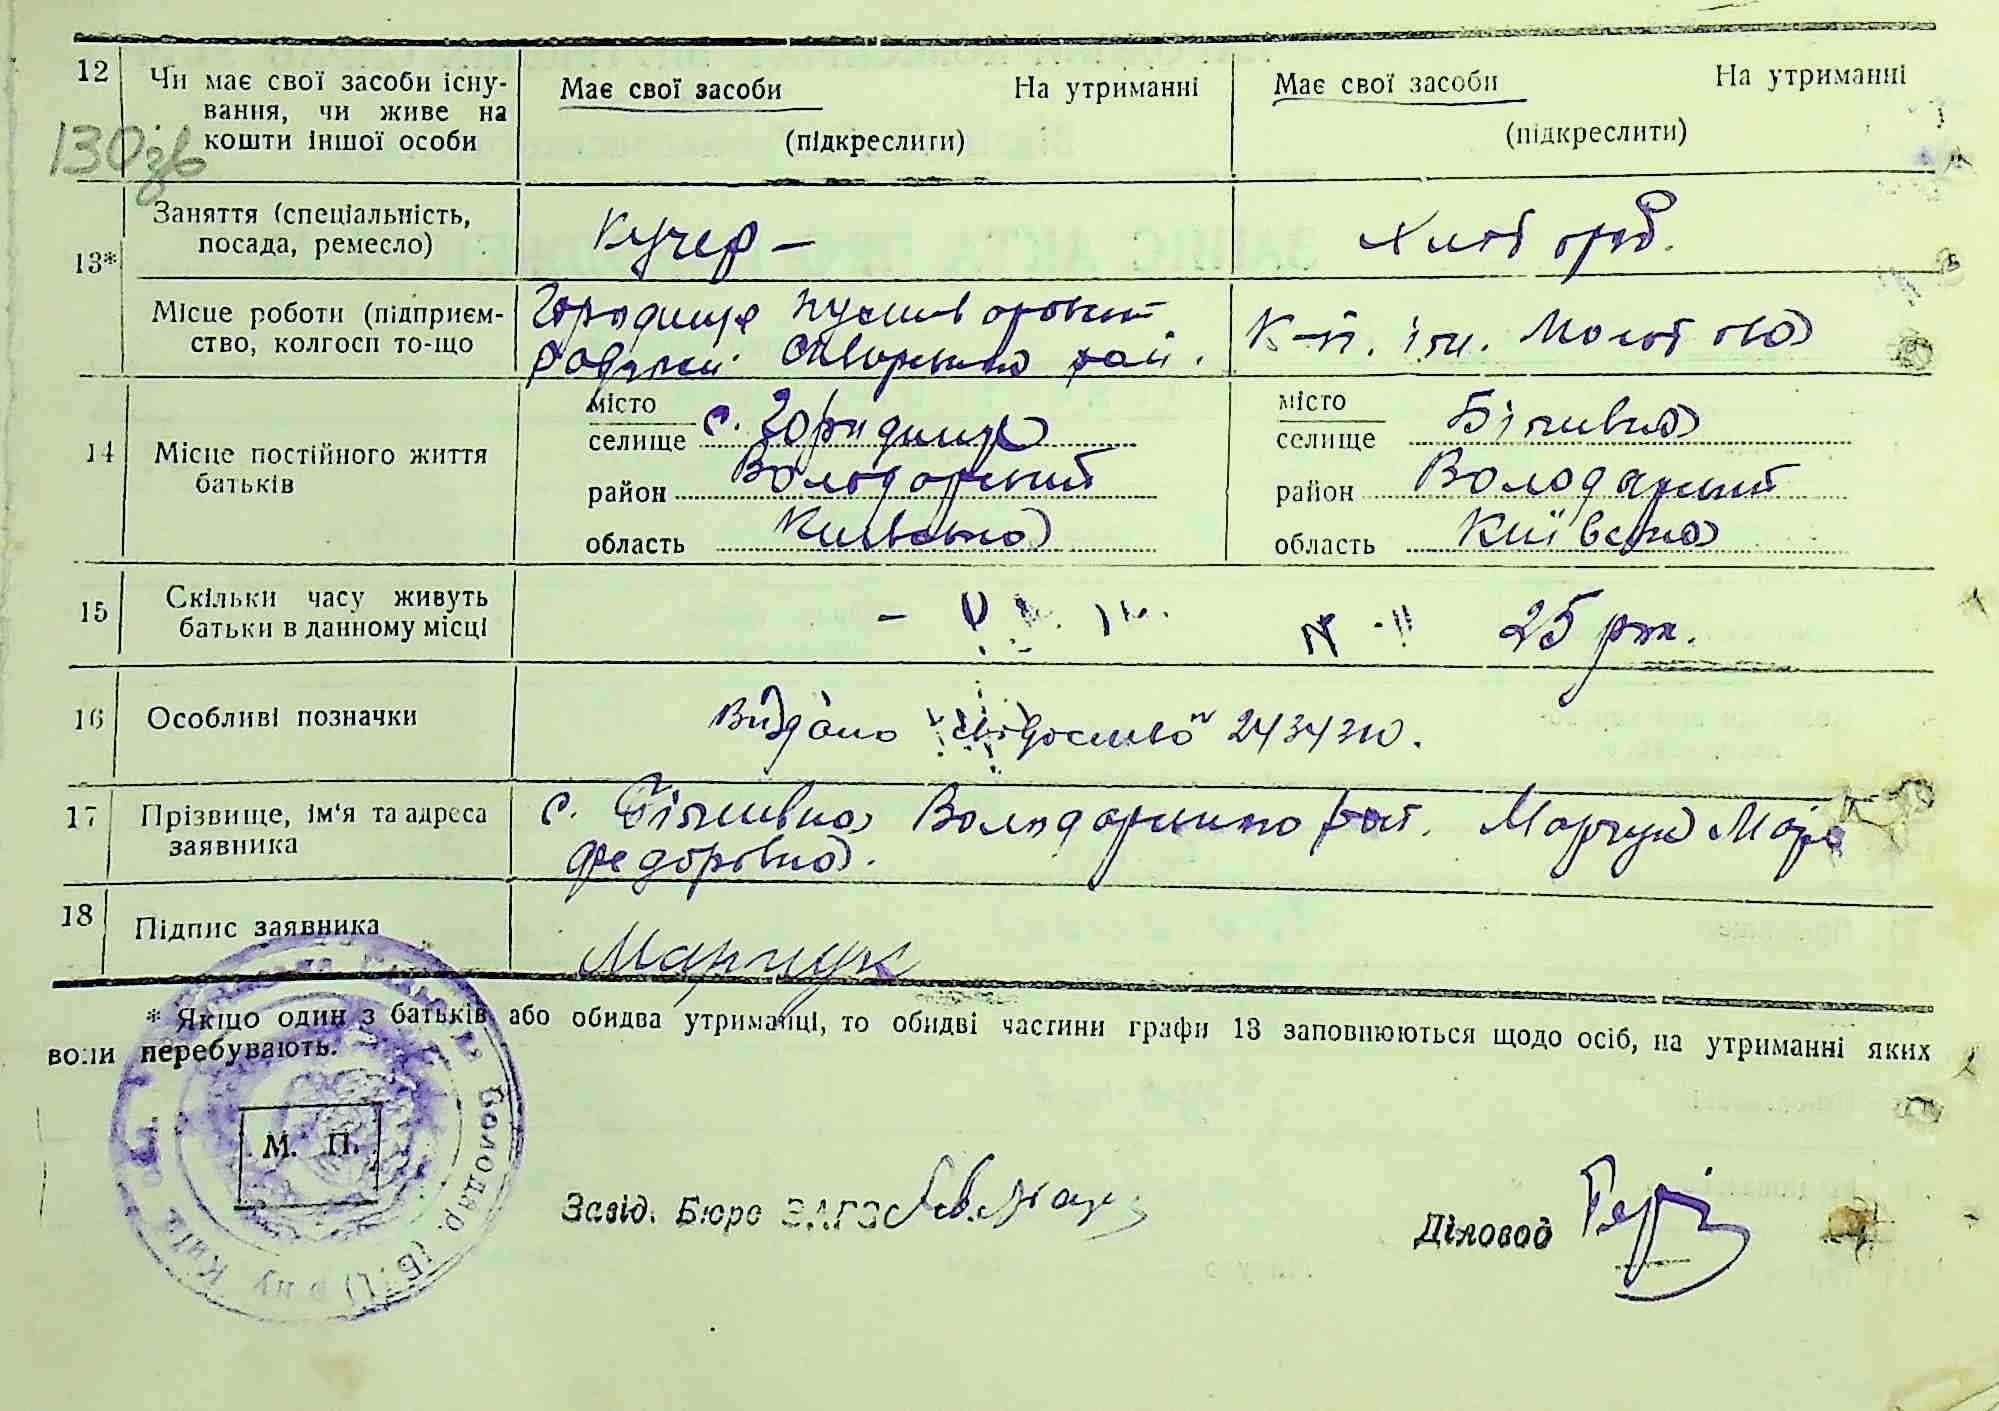 12 Чи має свої засоби існу- Має свої засоби На утриманні Має свої засоби На утриманні
вання, чи живе на
кошти іншої особи (підкреслити) (підкреслити)
130зв
13* Заняття (спеціальність, Кучер – Хлібороб.
посада, ремесло)
Місце роботи (підприєм- Городище
ство, колгосп то-що К-п. ім. Молотова
14 Місце постійного життя місто місто
батьків селище с. Городище селище Білиївка
район Володарський район Володарський
область Київська область Київська
15 Скільки часу живуть
батьки в данному місці 25 рок.
16 Особливі позначки Видано 243430.
17 Прізвище, ім'я та адреса с. Володарського рай. Марчук Марія
заявника Федорівна.
18 Підпис заявника Марчук
* Якщо один з батьків або обидва утриманці, то обидві частини графи 13 заповнюються щодо осіб, на утриманні яких
вони перебувають.
М. П.
Володар. (Б.Ц) р-ну Київ
Завід. Бюро ЗАГС
Діловод